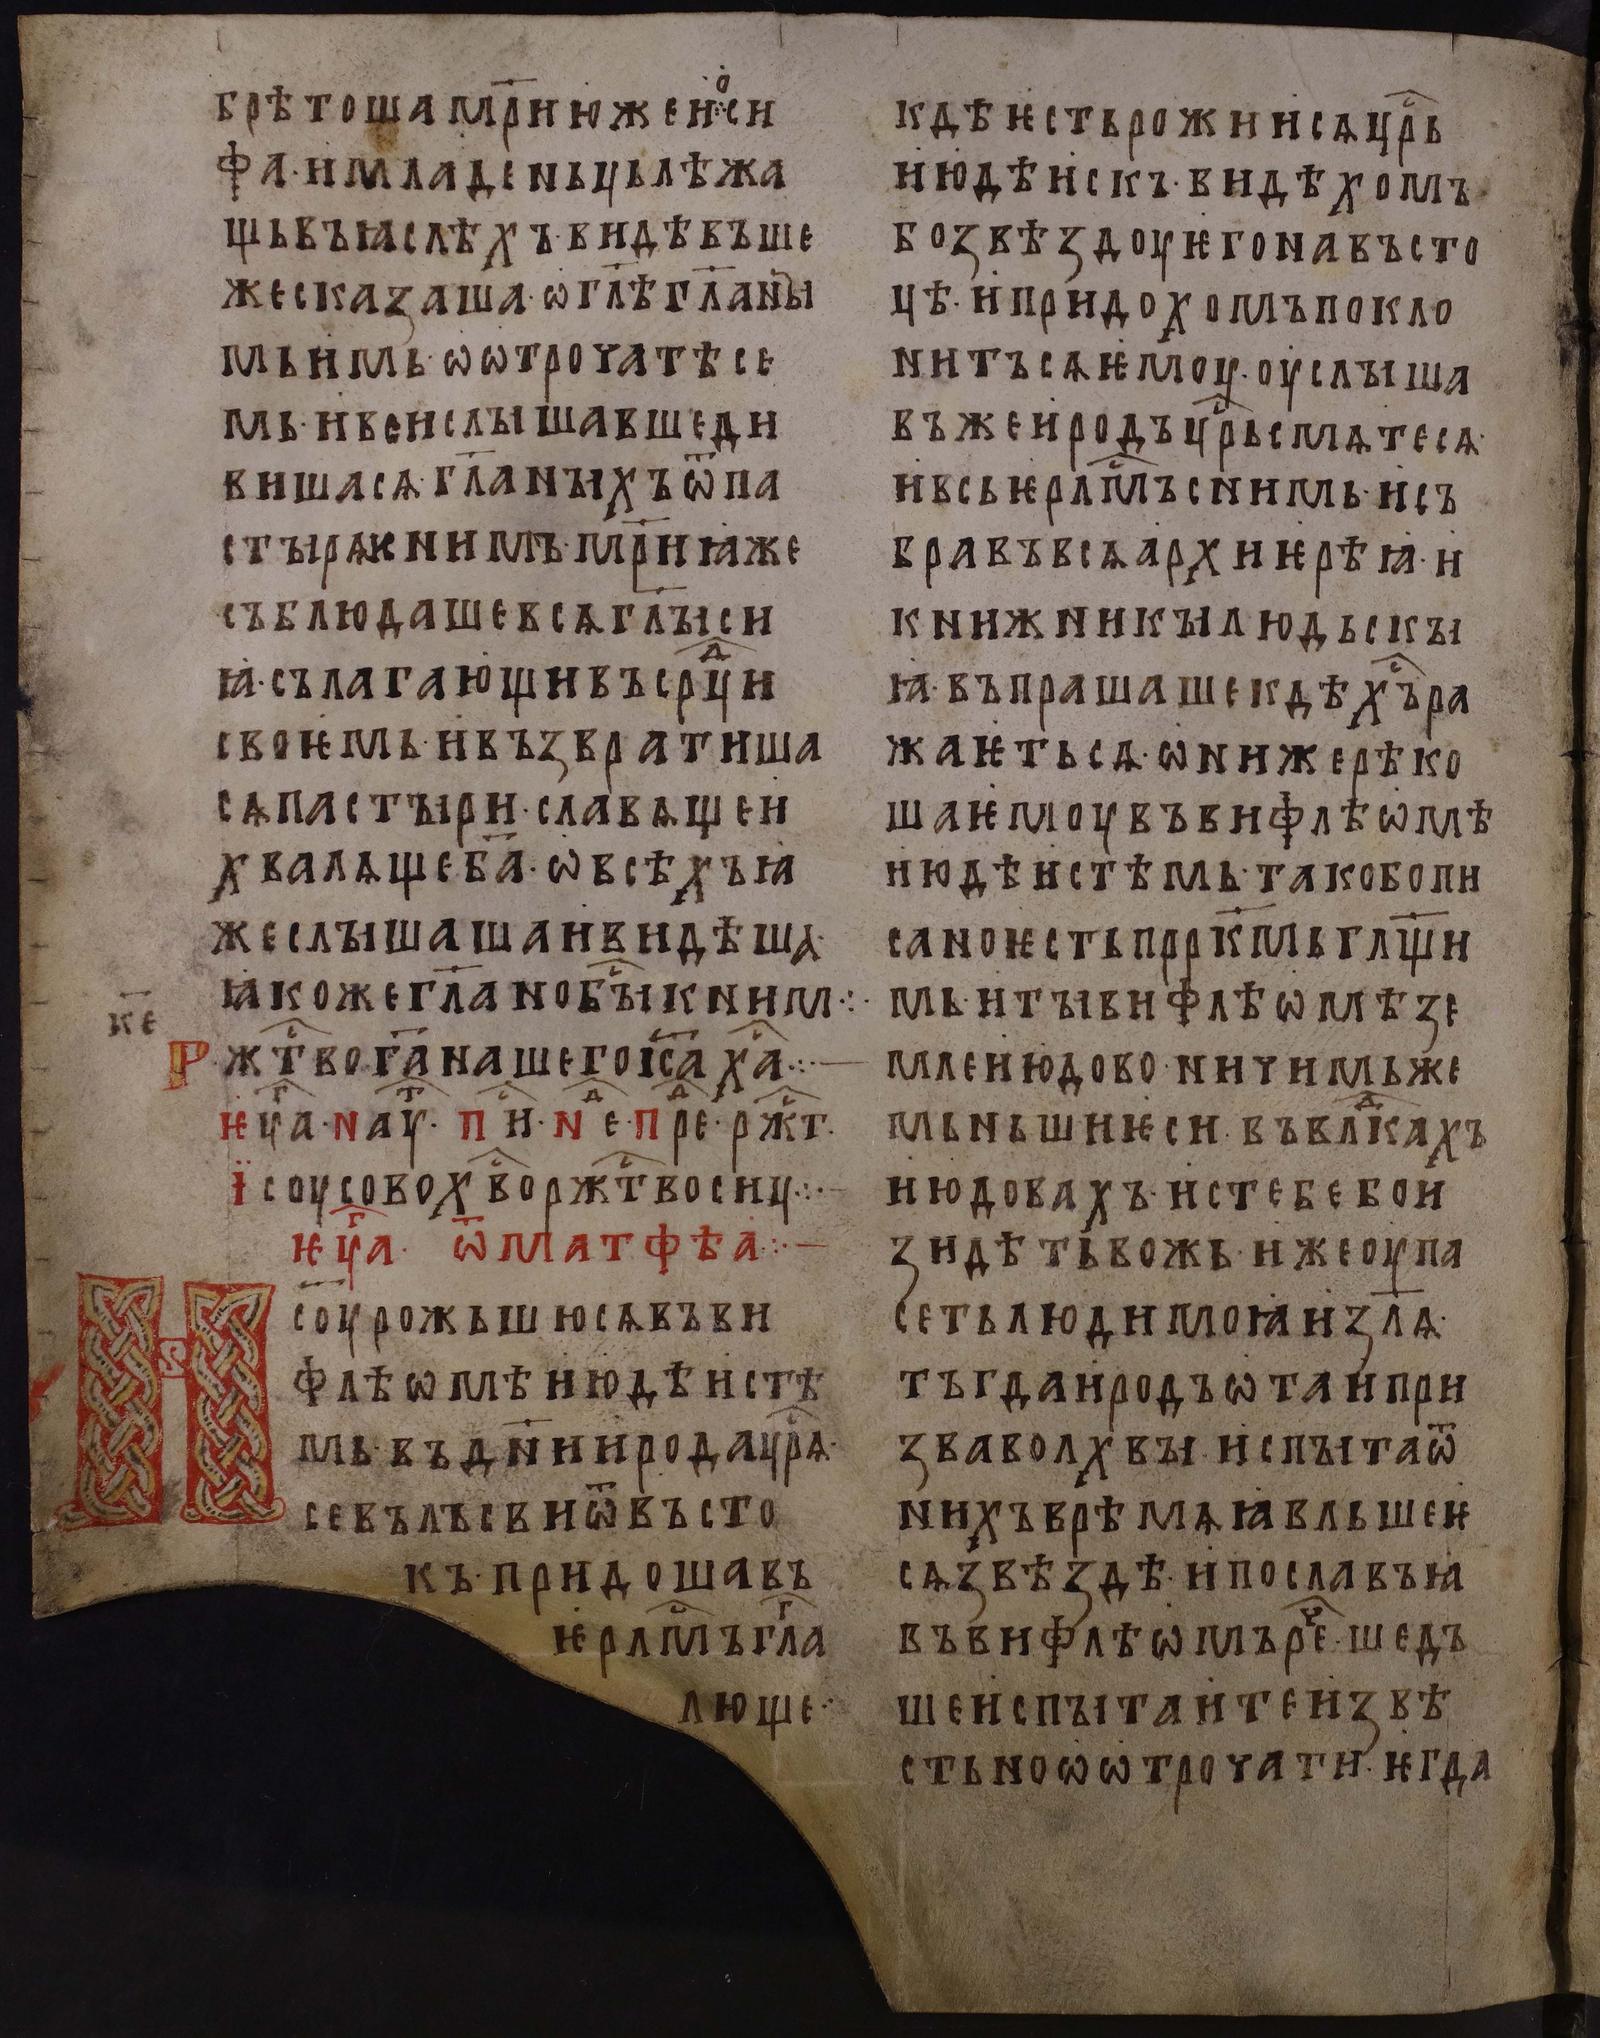 брѣтошамр҃июжениѡси
фа·имладеньцьлѣжа
щьвъꙗслѣхъ·видѣвъше
жесказаша·ѡгл҃ѣгл҃аны
мьимь·ѡѡтрочатѣсе
мь·ивсислышавшеди
вишасѧ·гл҃аныхъѿпа
стырѧкнимъ·мр҃иꙗже
съблюдашевсѧгл҃ыси
ꙗ·сълагающивъсрⷣци
своѥмь·ивъзвратиша
сѧпастыри·славѧщеи
хвалѧщеб҃а·ѡвсѣхъꙗ
жеслышашаивидѣшѧ·
ꙗкожегл҃анобыⷭкним·:·
к҃е
Р·жтⷭвог҃анашегоіс҃ахⷭа·:·—
ѥуⷢа·наⷮу·пⷭи·нⷣе·прⷣе·ржⷭт·
ісоусовохвⷭоржтⷭвосиц·:·—
ѥуⷢа· ѿматфѣа·:·—
И
с҃оурожьшюсѧвъви
флѣѡмѣиюдѣистѣ
мь·въдн҃ииродацрⷭѧ·
севълъсвиѿвъсто
къ·придошавъ
ѥрлⷭмъгⷢла
люще·
кдѣѥстьрожиисѧцрⷭь
июдѣискъ·видѣхомъ
бозвѣздоуѥгонавъсто
цѣ·ипридохомъпокло
нитъсѧѥмоу·оуслыша
въжеиродъцрⷭьсмѧтесѧ·
ивсьѥрлⷭмъснимь·исъ
бравъвсѧархиѥрѣꙗ·и
книжникылюдьскы
ꙗ·въпрашашекдѣхⷭъра
жаѥтьсѧ·ѡнижерѣко
шаѥмоувъвифлѣѡмѣ
июдѣистѣмь·такобопи
саноѥстьпррк҃мьглщ҃и
мь·итывифлѣѡмѣзе
млеиюдово·ничимьже
мьньшиѥси·въвлⷣкахъ
июдовахъ·истебебои
зидѣтьвожь·ижеоупа
сетьлюдимоꙗиз҃лѧ·
тъгдаиродъѡтаипри
звавохвы·испытаѿ
нихъврѣмѧꙗвльшеѥ
сѧзвѣздѣ·ипославъꙗ
въвифлѣѡмърⷱе·шедъ
шеиспытаитеизвѣ
стьноѡѡтрочати·ѥгда